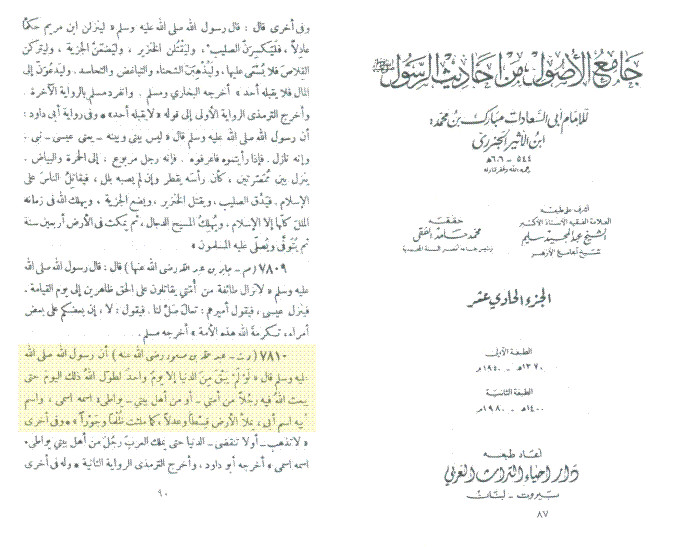 جامع الأصول من أحاديث الرسول
للإمام أبى السعادات مبارك بن محمد:
ابن الأثير الجزرى
٥٤٤ - ٦٠٦ هـ
رحمه الله وغفر له
أشرف على طبعه
العلامة الفقيه الأستاذ الأكبر
الشيخ عبد المجيد سليم
شيخ الجامع الأزهر
حققه
محمد حامد الفقى
رئيس جماعة أنصار السنة المحمدية
الجزء الحادى عشر
الطبعة الأولى
١٣٧٠ هـ - ١٩٥٠ م
الطبعة الثانية
١٤٠٠ هـ - ١٩٨٠ م
أعاد طبعه
دار إحياء التراث العربي
بيروت - لبنان
٨٧
وفى أخرى قال : قال رسول الله صلى الله عليه وسلم « لينزلن ابن مريم حكمًا
عادلاً ، فليكسرنّ الصليب ، وليقتلن الخنزير ، وليضعنّ الجزية ، وليتركن
القلاص فلا يُسْعَى عليها، وليذهبنّ الشحناء والتباغض والتحاسد . وليدعونّ إلى
المال فلا يقبله أحد » أخرجه البخارى ومسلم . وانفرد مسلم بالرواية الآخرة .
وأخرج الترمذى الرواية الأولى إلى قوله « لا يقبله أحد » وفى رواية أبى داود :
أن رسول الله صلى الله عليه وسلم قال « ليس بينى وبينه - يعنى عيسى - نبى .
وإنه نازل . فإذا رأيتموه فاعرفوه . فإنه رجل مربوع ، إلى الحمرة والبياض .
ينزل بين مُمَصَّرتين ، كأن رأسه يقطر وإن لم يصبه بلل ، فيقاتل الناس على
الإسلام . فيَدُق الصليب ، ويقتل الخنزير ، ويضع الجزية ، ويهلك الله فى زمانه
الملل كلها إلا الإسلام . ويُهلِك المسيح الدجال ، ثم يمكث فى الأرض أربعين سنة
ثم يُتوفَّى ويُصلِّى عليه المسلمون »
٧٨٠٩ (م - جابر بن عبد الله رضى الله عنها) قال : قال رسول الله صلى الله
عليه وسلم « لا تزال طائفة من أمتى يقاتلون على الحق ظاهرين إلى يوم القيامة .
فينزل عيسى ، فيقول أميرهم : تعال صلّ لنا . فيقول : لا ، إن بعضكم على بعض
أمراء، تكرمةَ الله هذه الأمة » أخرجه مسلم .
٧٨١٠ (د ت - عبد الله بن مسعود رضى الله عنه) أن رسول الله صلى الله
عليه وسلم قال « لو لم يبق من الدنيا إلا يوم واحد لطوّل الله ذلك اليوم حتى
يبعث الله فيه رجلاً من أمتى - أو من أهل بيتى - يواطىء اسمه اسمى ، واسم
أبيه اسم أبى ، يملأ الأرض قِسْطًا وعدلاً ، كما ملئت ظُلْمًا وجَوْرًا » « وفى أخرى
« لا تذهب - أو لا تنقضى - الدنيا حتى يملك العربَ رجلٌ من أهل بيتى يواطىء
اسمه اسمى » أخرجه أبو داود ، وأخرج الترمذى الرواية الثانية « وله فى أخرى
٩٠